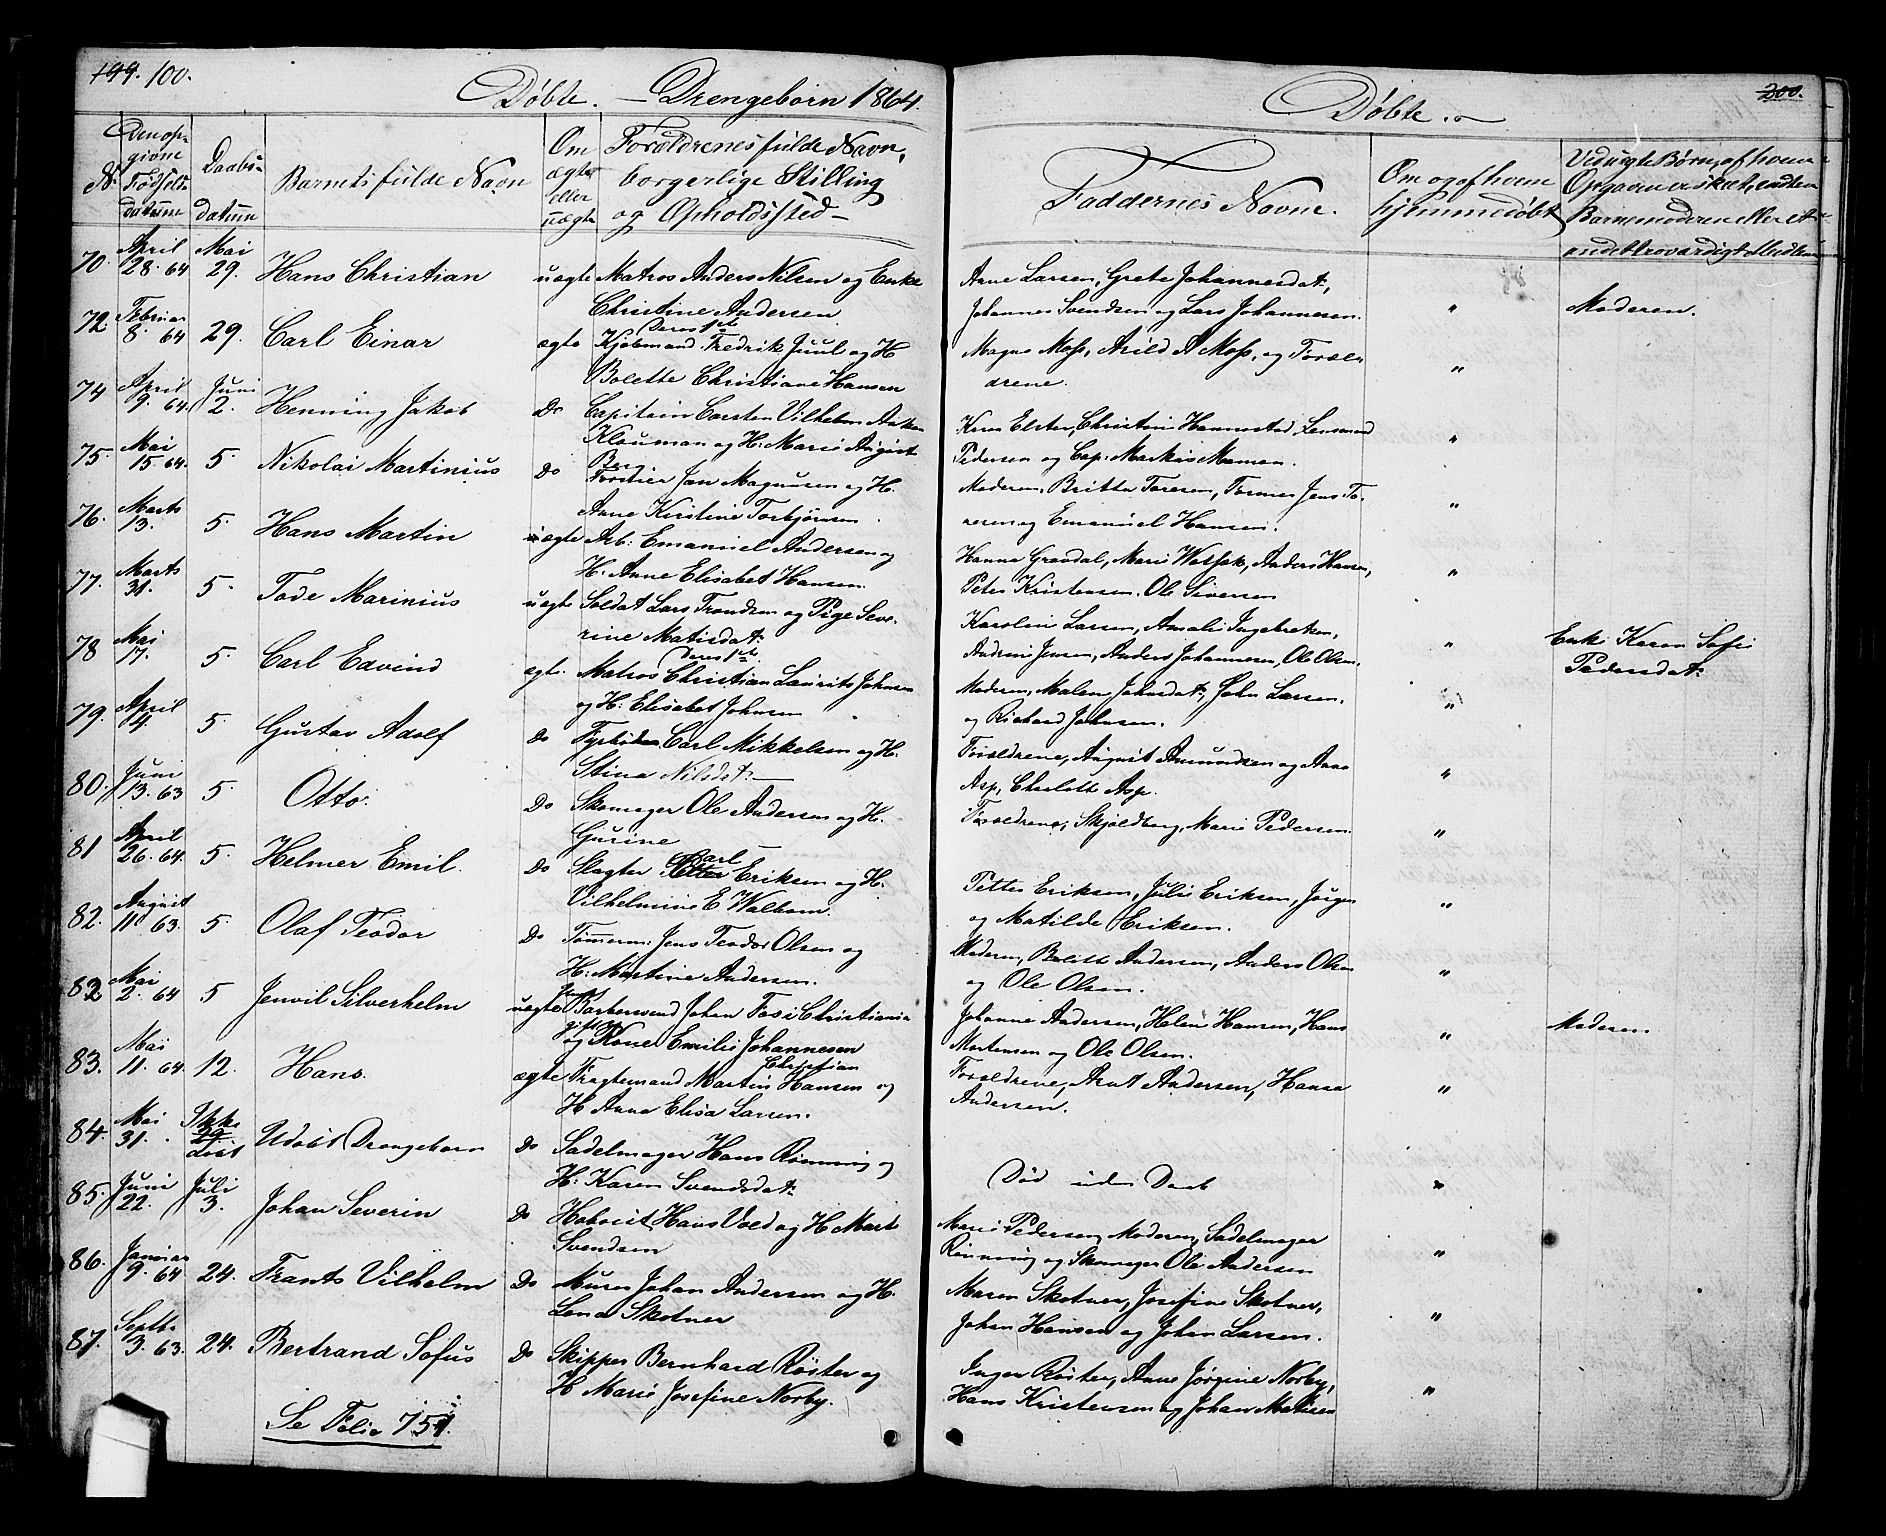 199. 100.
Døbte. — Drengebørn 1864.
No.
Den op-
givne
Fødsels-
datum
Daabs-
datum
Barnets fulde Navn
Om
ægte
eller
uægte
Forældrenes fulde Navn,
borgerlige Stilling
og Opholdssted
70. April 28. 64 Mai 29. Hans Christian uægte Matros Anders Nilsen og Enke
Christine Andersen Deres 1ste
72 Februar 8. 64 29. Carl Einar ægte Kjøbmand Fredrik Juul og H
Bolette Christiane Hansen
74 April 9. 64. Juni 2. Henning Jakob Do Capitain Carsten Vilhelm
Klouman og H. Marie August
Berg
75. Mai 15. 64. 5. Nikolai Martinius Do Jan Magnusen og H.
Anne Kirstine Torbjørnsen
76. Marts 13. 5. Hans Martin ægte Arb: Emanuel Andersen og
H. Anne Elisabet Hansen
77. Marts 31. 5. Tode Marinius uægte Soldat Lars Trondsen og Pige Seve-
rine Matisdat. Deres 1ste
78 Mai 17. 5. Carl Edvind ægte. Matros Christian Laurits Johnsen
og H. Elisabet Johnsen
79. April 4. 5. Gustav Adolf Do Carl Mikkelsen og H.
Stina Nilsdat.
80. Juni 13. 63 5. Otto. Do Skomager Ole Andersen og H.
Gurine
81 April 26. 64. 5. Helmer Emil. Do Slagter Petter Carl Eriksen og H.
Vilhelmine E Walbom.
82. August 11 63. 5. Olaf Teodor Do Tømmerm: Jens Teodor Olsen og
H. Martine Andersen.
82 Mai 2. 64 5 Jenvil Silverhelm uægte Barbersvend Johan Foss i Christiania
og gift Kone Emilie Johannesen
83. Mai 11. 64. 12. Hans. ægte Fragtemand Martin Christian Hansen og
H Anne Elisa Larsen.
84. Mai 31. Ikke døbt Udøbt Drengebarn Do Sadelmager Hans Rønning og
H. Karen Svendsdat.
85. Juni 22. Juli 3. Johan Severin Do Hans Vold og H Mart
Svendsen
86. Januar 9. 64 24. Frants Vilhelm Do Murer Johan Andersen og H.
Lena Skotner
87. Septb. 3. 63. 24. Bertrand Sofus Do Skipper Bernhard Røster og
H Marie Josefine Norby.
Se Folio 751.
200.
Døbte.
Faddernes Navne.
Om og af hvem
hjemmedøbt
Ved uægte Børn, af hvem
Opgaven er skeet, enten
Barnemoderen eller et
andet troværdigt Medlem
Anne Larsen, Grete Johannesdat,
Johannes Svendsen og Lars Johannesen. " Moderen.
Magnus Moss, Arild A Moss, og Foræl-
drene. "
Karen Elster, Christine Hannestad, Lensmand
Pedersen og Cap. Markus Mamen. "
Moderen, Britta Toresen, Jens To-
resen og Emanuel Hansen. "
Hanna Grandal, Marie Anders Hansen,
Peter Kristensen. Ole Siversen "
Karolin Larsen, Amalie Ingebretsen,
Andrine Jensen, Anders Johannesen, Ole Olsen. " Enke Karen Sofie
Pedersdat.
Moderen, Malen Johnsdat., John Larsen,
og Richard Johnsen. "
Forældrene, August Amundsen og Anna
Asp, Charlotte Asp. "
Forældrene, Skjoldborg, Marie Pedersen. "
Petter Eriksen, Julie Eriksen, Jørgen
og Matilde Eriksen. "
Moderen, Bolette Andersen, Anders Olsen
og Ole Olsen. "
Johanne Andersen, Helene Hansen, Hans
Mortensen og Ole Olsen. " Moderen
Forældrene, Arnt Andersen, Hansa
Andersen. "
Død uden Daab "
Marie Pedersen, Moderen, Sadelmager
Rønning og Skomager Ole Andersen "
Maren Skotner, Josefine Skotner,
Johan Hansen og Johan Larsen. "
Inger Røster, Anne Jørgine Norby,
Hans Kristensen og Johan Matisen "